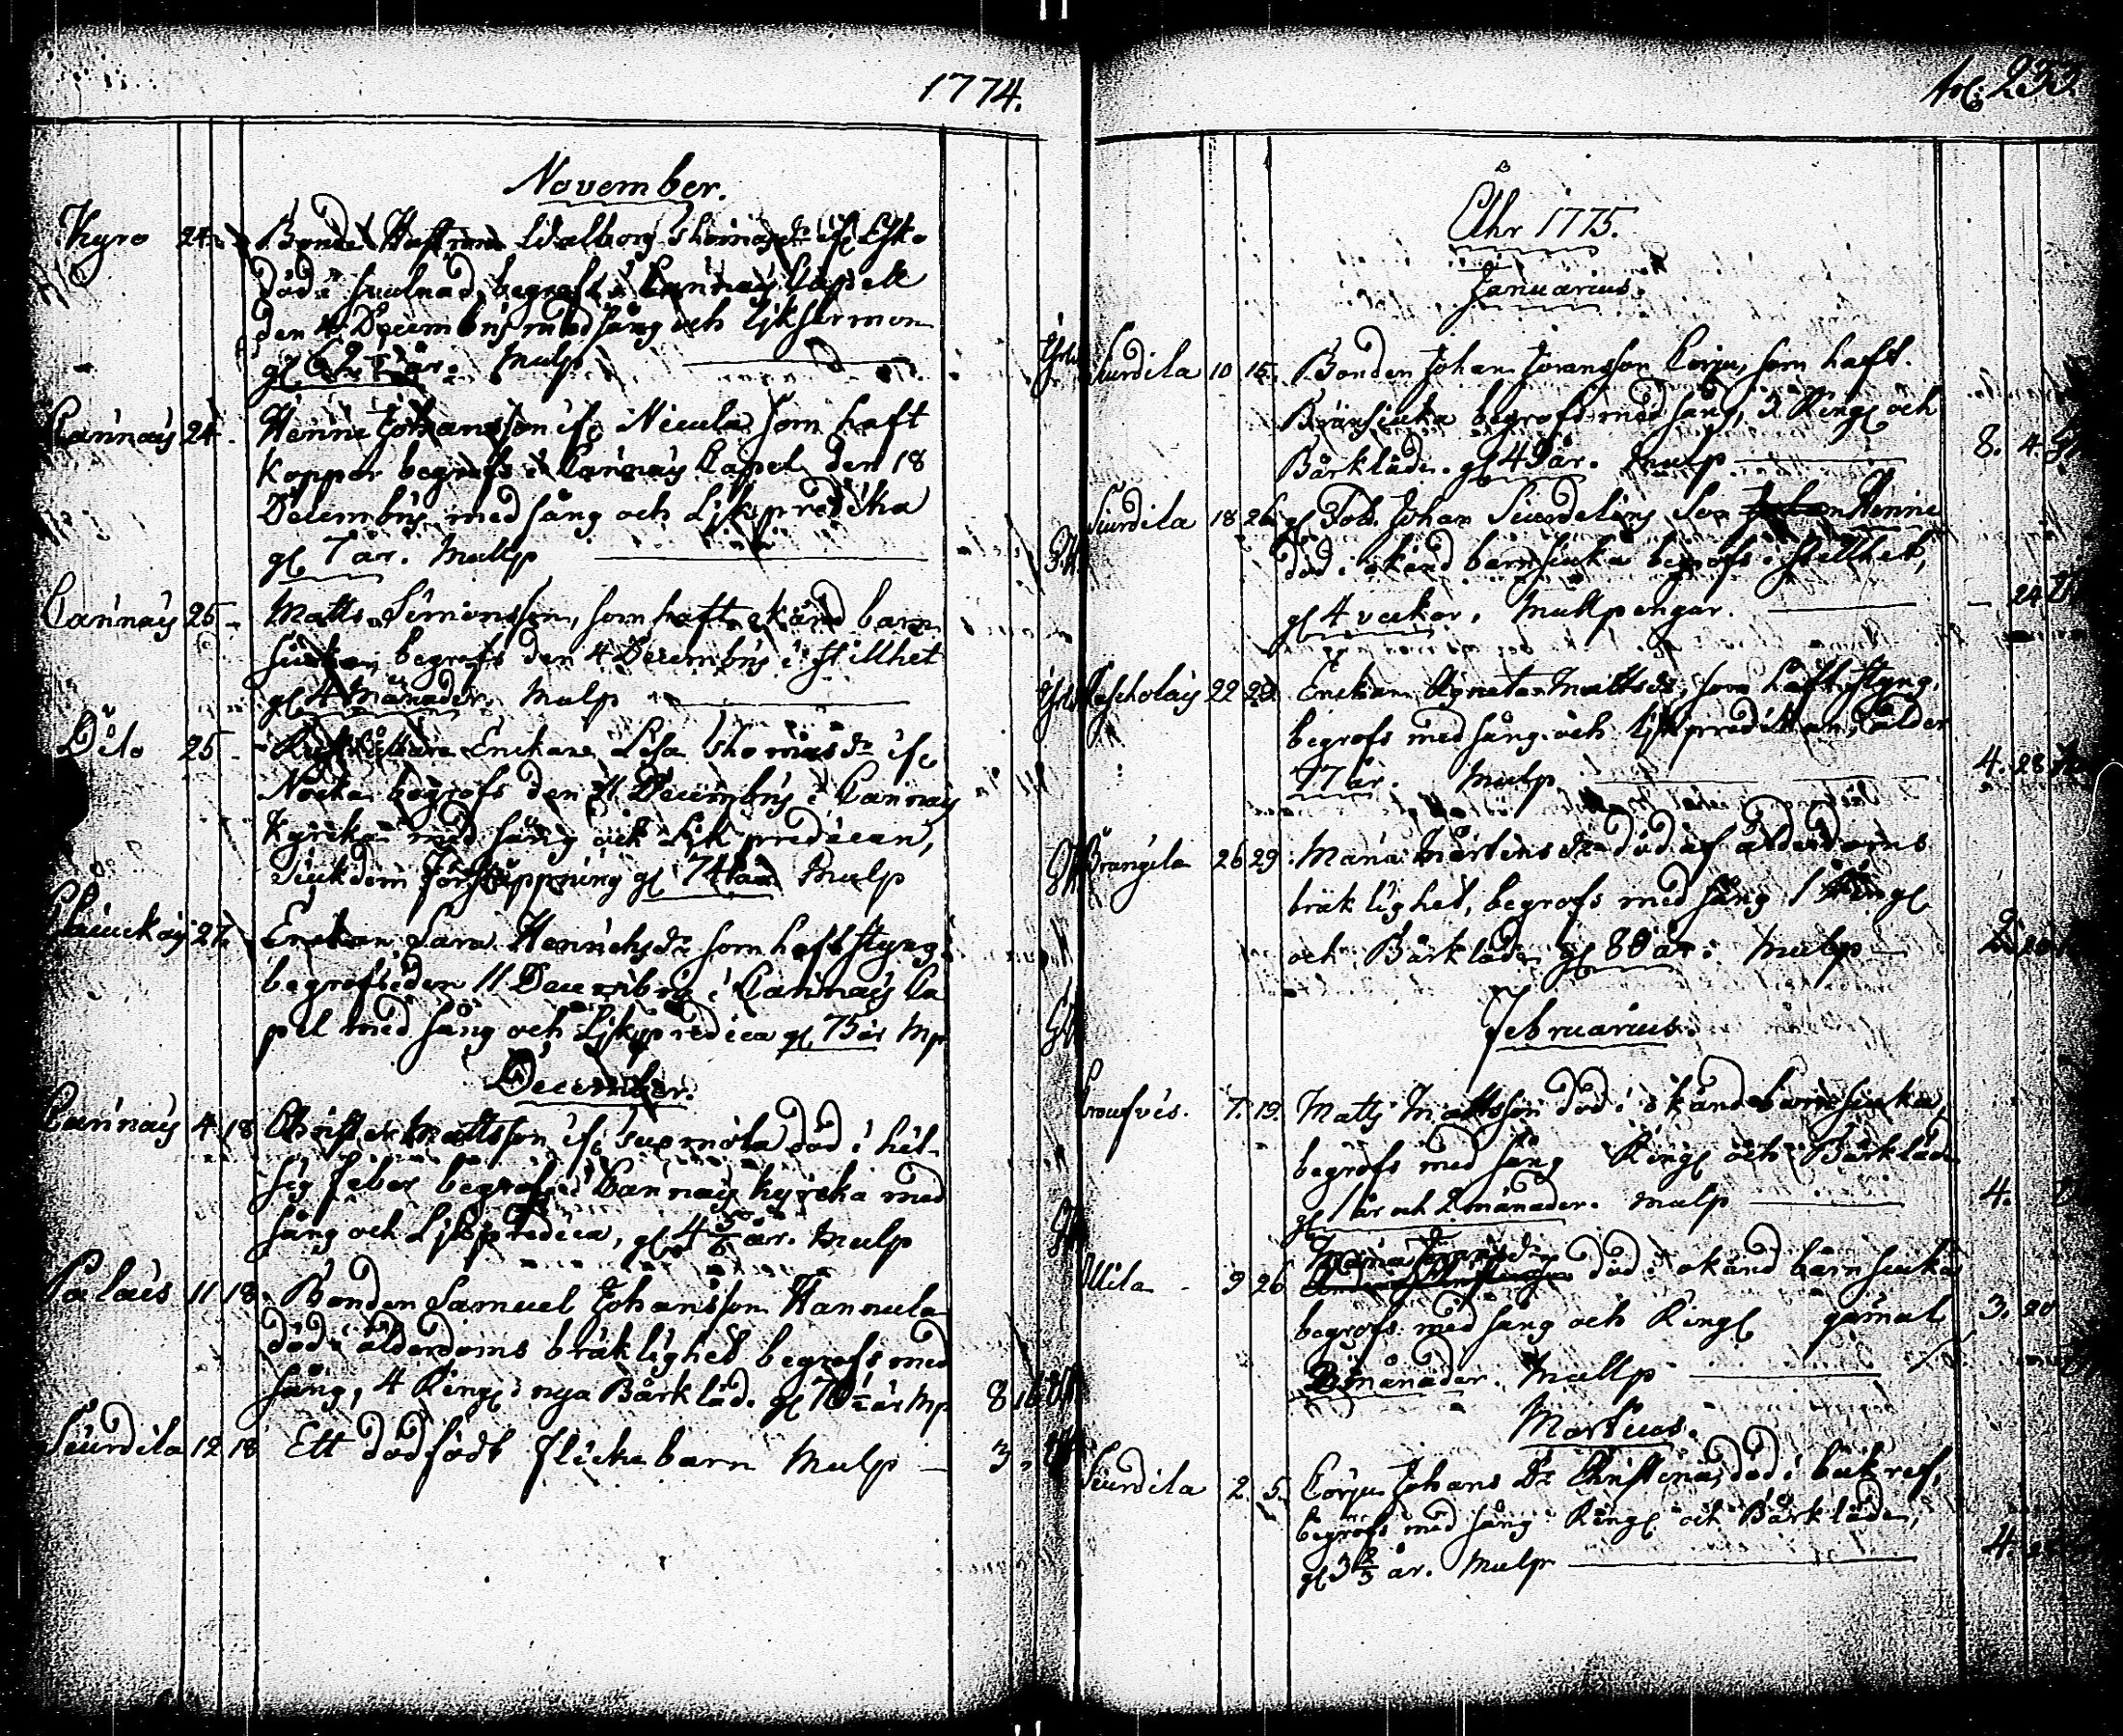 1774.
November.
Kyro 24. Bonde Hustrun Walborg Thomasdr ifr Esko
död i svulnad, begrofs i Cannäs Capell
den 4 Decembris med sång och Lijksermon
gl. år. Mulp
Cannäs 24. Henric Johansson ifr Nicula som haft
koppor begrofs i Cannäs Capel den 18
Decembris med sång och Lijkspredika
gl. 7 år. Mullp
Cannäs 25 Matts Simonsson, som haft okänd barn
siukan begrofs den 4 Decembris i stillhet
gl. 4 månader. Mulp
25 Enckan Lisa Thomasdr ifr
begrofs den 11 Decembris i Cannäs
Kyrcka med sång och Lijk predican,
Siukdom Förstoppning gl. 74 år. Mulp
27. Enckan Sara Henrichsdr som haft styng
begrofs den 11 Decembris i Cannäs Ca
pel med sång och Lijkpredica gl. 75 år Mp
December.
Cannäs 4 18 Christer Mattsson ifr död i het-
sig feber begrofs i Cannäs kyrcka med
sång och Lijkpredica, gl. 4 5/6 år. Mulp
Palais 11 18. Bonden Samuel Johansson Hannula
död i ålderdoms bräklighet begrofs med
sång, 4 Ringl: nya Bårkläd. gl. år Mp 8 16
Siurdila 12 18 Ett dödfödt flicke barn Mulp — 3.
fol. 233
Åhr 1775.
Januarius.
Siurdila 10 15. Bonden Johan Joransson Corju, som haft
Brännsiuka begrofs med sång, 3 Ringl och
Bårkläde. gl. 49 år. Mulp 8. 4.
Siurdila 18 26. gl. Sold. Johan Siurdelins Son Henric
död i okänd barnsiuka begrofs i stillhet,
gl. 4 veckor. Mullpengar. — 24
22 29. Enckan Agneta Mattsdr, som haft styng
begrofs med sång och Lijkpredikan, ålder
77 år. Mulp 4. 28
Brangila 26 29. Maria Mårtensdr död af ålderdoms
bräklighet, begrofs med sång 1 Ringl
och Bårkläde gl. 80 år. Mulp — 2.
Februarius.
7. 19. Matts Mattsson död i okänd barnsiuka,
begrofs med sång Ringl och Bårkläde
gl. 1 år och 2 månader. Mulp 4.
Ollila 9 26 Maria död i okänd barnsiuka
begrofs med sång och Ringl gamal 3. 20
månader. Mullp
Martius.
Siurdila 2. 5. Corju Johans Dr Christina, död i bukref,
begrofs med sång Ringl och Bårkläde,
gl. 3 2/3 år. Mulp 4.